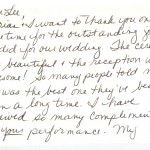 & I want to thank you on
time for the outstanding
did for our wedding. The cere
beautiful & the reception w
some! So many people told m
was the best one they've be
in a long time. I have
so many complemen
your performance. My